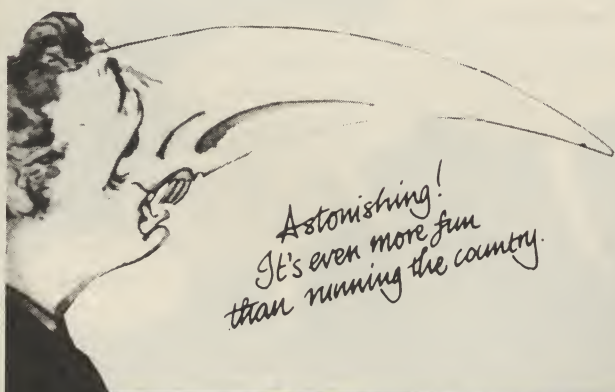 Astonishing!
It's even more fun
than running the country.